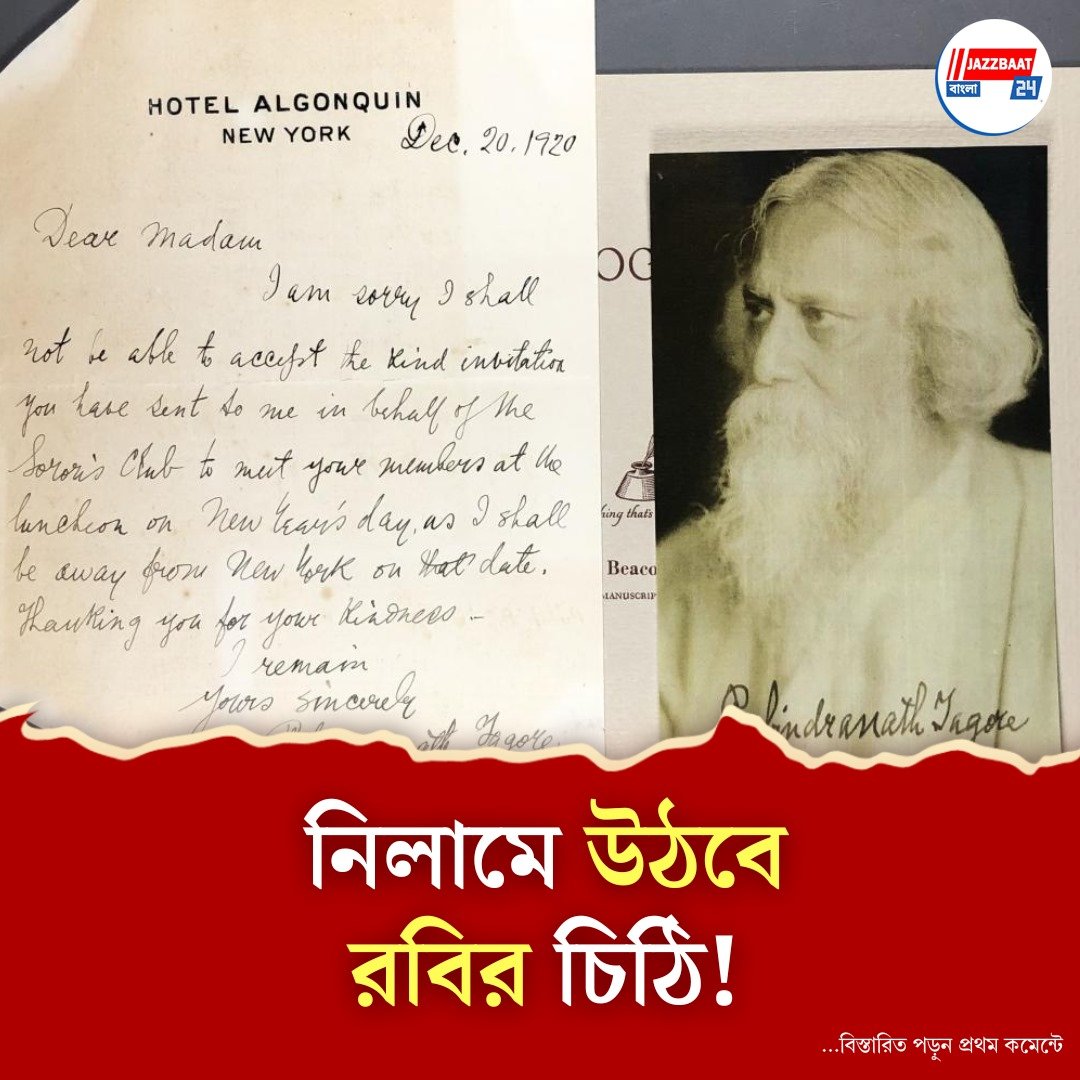 JAZZBAAT
বাংলা 24
HOTEL ALGONQUIN
NEW YORK
Dec. 20, 1920
Dear Madam
I am sorry I shall
not be able to accept the kind invitation
you have sent to me in behalf of the
Sorosis Club to meet your members at the
luncheon on New Year's day, as I shall
be away from New York on that date.
Thanking you for your kindness –
I remain
Yours sincerely
Tagore
OG
hing that's
Beaco
MANUSCRIP
Rabindranath Tagore
নিলামে উঠবে
রবির চিঠি!
...বিস্তারিত পড়ুন প্রথম কমেন্টে